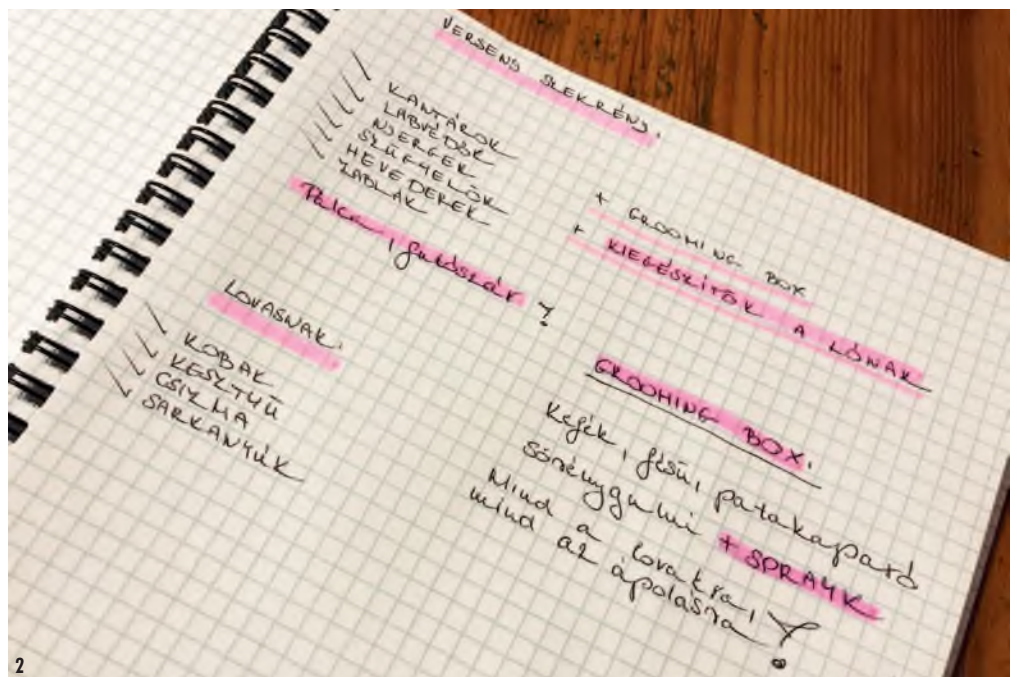 VERSENY SZEKRÉNY.
KANTÁROK
LÁBVÉDŐK
NYERGEK
SZÜGYELŐK
HEVEDEREK
ZABLÁK
Pálca, futószár ?
LOVASNAK:
KOBAK
KESZTYŰ
CSIZMA
SARKANYÚK
+ GROOMING BOX
+ KIEGÉSZÍTŐK A LÓNAK
GROOMING BOX.
Kefék, fésű, patakaparó
sörénygumi + SPRAYK
Mind a lovakra,
mind az ápolásra !
2